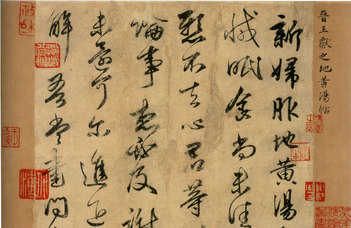 晉王獻之地黃湯帖
新婦服地黃湯
減眠食尚未佳
懸不去心君等
論事想必及謝
未還可爾進退
解吾當書問